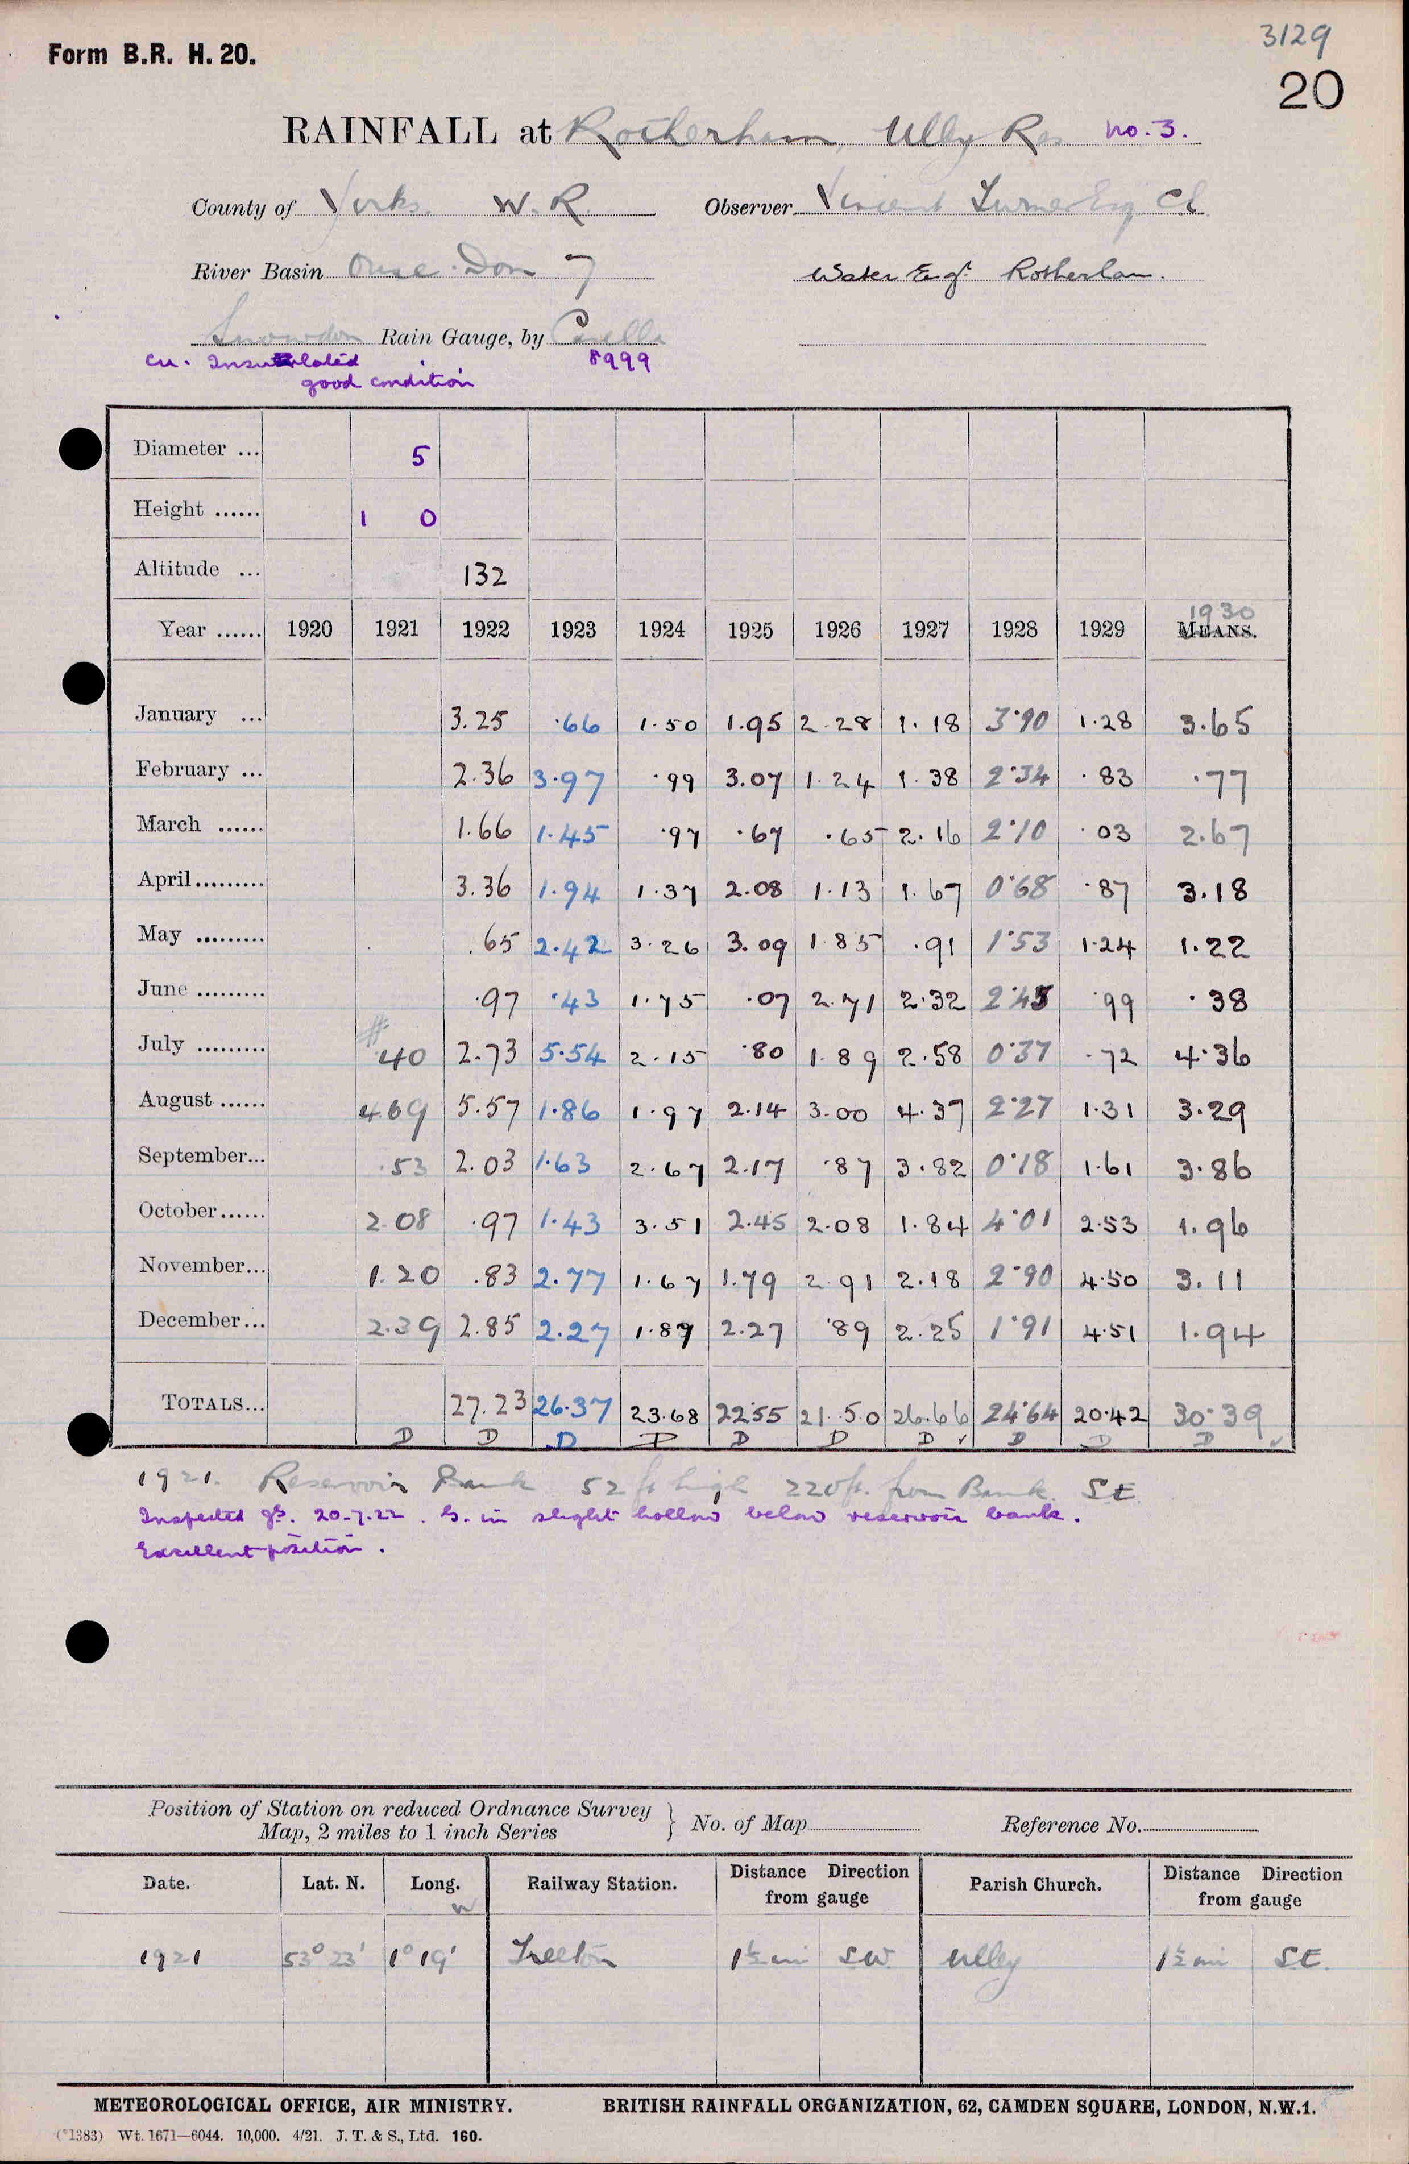 Form B.R. H. 20.
3129
20
RAINFALL at Rotherham, Ulley Res no. 3.
County of Yorks. W. R. Observer Vincent Turner Esq CE
River Basin Ouse. Don 7 Water Engr. Rotherham.
Snowdon Rain Gauge, by Casella
Cu. Insulated 8999
good condition
Diameter ... 5
Height ...... 1 0
Altitude ... 132
1930
Year ...... 1920 1921 1922 1923 1924 1925 1926 1927 1928 1929 MEANS.
January ... 3.25 .66 1.50 1.95 2.28 1.18 3.90 1.28 3.65
February ... 2.36 3.97 .99 3.07 1.24 1.38 2.34 .83 .77
March ...... 1.66 1.45 .97 .67 .65 2.16 2.10 .03 2.67
April......... 3.36 1.94 1.37 2.08 1.13 1.67 0.68 .87 3.18
May ......... .65 2.42 3.26 3.09 1.85 .91 1.53 1.24 1.22
June ......... .97 .43 1.75 .07 2.71 2.32 2.45 .99 .38
July ......... # .40 2.73 5.54 2.15 .80 1.89 2.58 0.37 .72 4.36
August ...... 4.69 5.57 1.86 1.97 2.14 3.00 4.37 2.27 1.31 3.29
September... .53 2.03 1.63 2.67 2.17 .87 3.82 0.18 1.61 3.86
October...... 2.08 .97 1.43 3.51 2.45 2.08 1.84 4.01 2.53 1.96
November... 1.20 .83 2.77 1.67 1.79 2.91 2.18 2.90 4.50 3.11
December... 2.39 2.85 2.27 1.87 2.27 .89 2.25 1.91 4.51 1.94
TOTALS... 27.23 26.37 23.68 22.55 21.50 26.66 24.64 20.42 30.39
D D D D D D D ✓ D D D ✓
1921. Reservoir Bank 52 ft high 220 ft. from Bank. SE
Inspected 20-7-22. G. in slight hollow below reservoir bank.
Excellent position.
Position of Station on reduced Ordnance Survey
Map, 2 miles to 1 inch Series } No. of Map Reference No.
Date. Lat. N. Long. W Railway Station. Distance Direction from gauge Parish Church. Distance Direction from gauge
1921 53° 23' 1° 19' Treeton 1½ mi SW Ulley 1½ mi SE.
METEOROLOGICAL OFFICE, AIR MINISTRY. BRITISH RAINFALL ORGANIZATION, 62, CAMDEN SQUARE, LONDON, N.W.1.
(*1383) Wt. 1671—6044. 10,000. 4/21. J. T. & S., Ltd. 160.